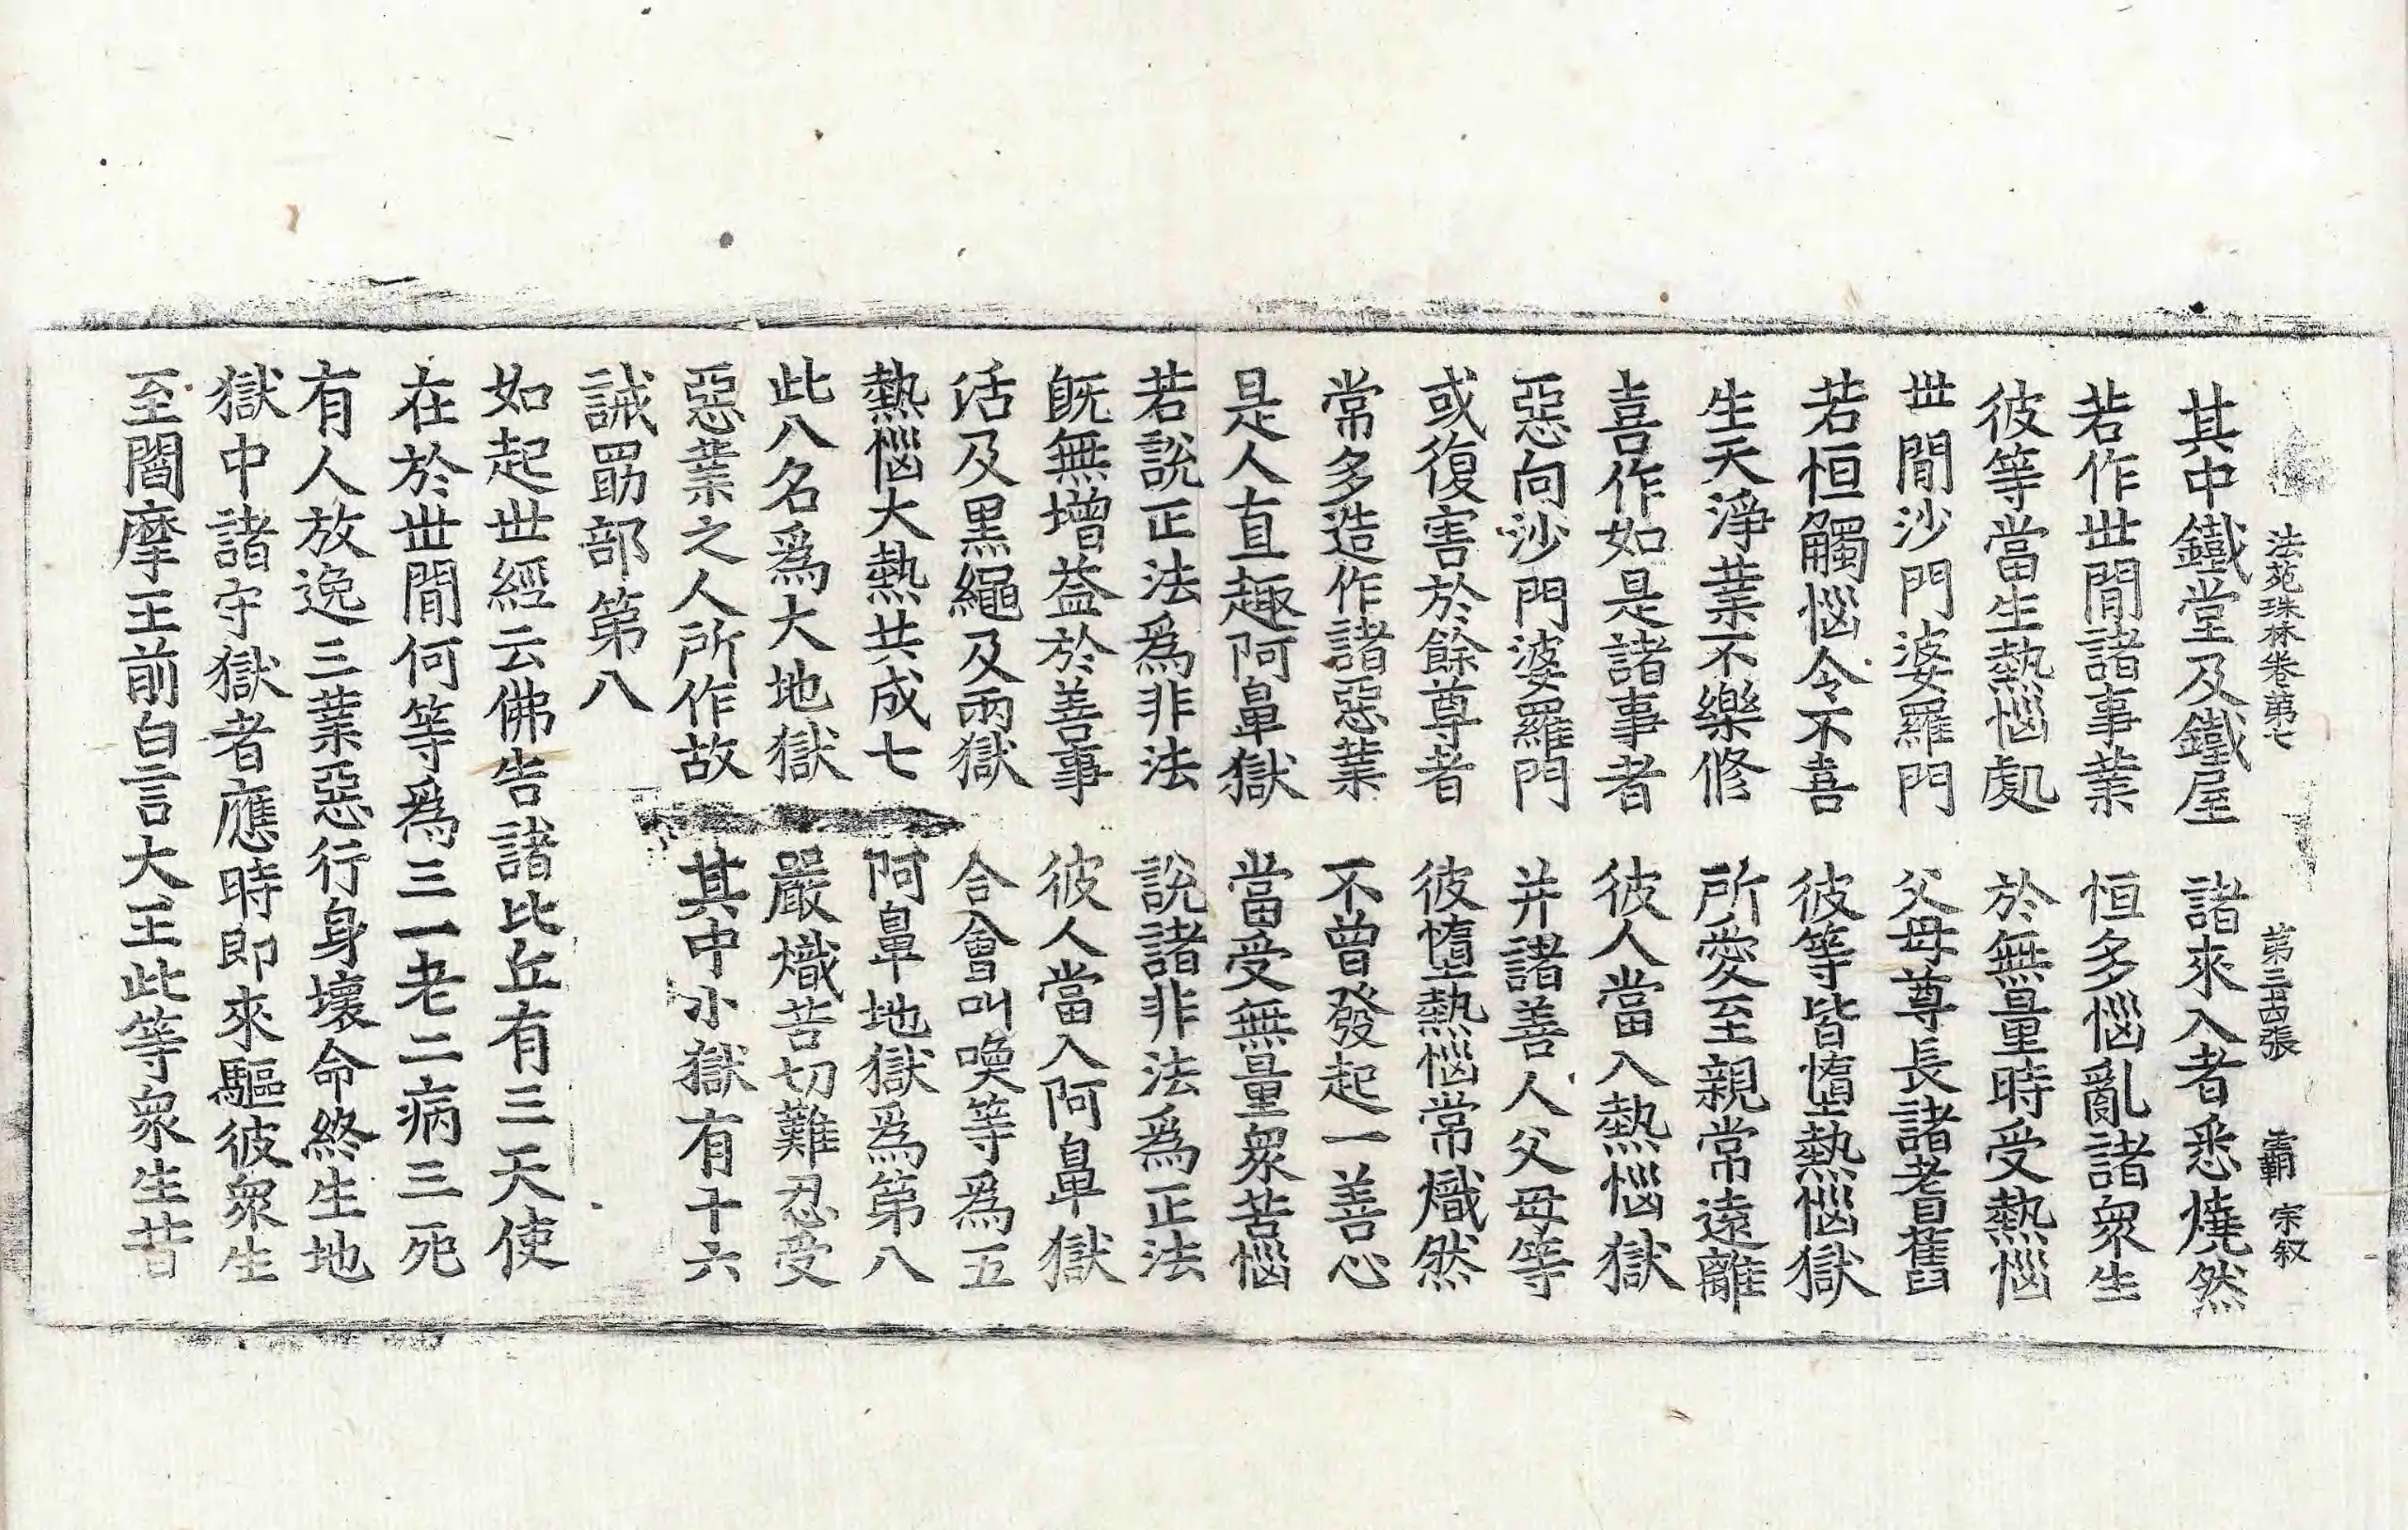 法苑珠林卷第七 第三十四張 霸 宗叙
其中鐵堂及鐵屋 諸來入者悉燒然
若作世閒諸事業 恒多惱亂諸衆生
彼等當生熱惱處 於無量時受熱惱
世閒沙門婆羅門 父母尊長諸耆舊
若恒觸惱令不喜 彼等皆墮熱惱獄
生天淨業不樂修 所愛至親常遠離
喜作如是諸事者 彼人當入熱惱獄
惡向沙門婆羅門 并諸善人父母等
或復害於餘尊者 彼墮熱惱常熾然
常多造作諸惡業 不曾發起一善心
是人直趣阿鼻獄 當受無量衆苦惱
若說正法爲非法 說諸非法爲正法
旣無增益於善事 彼人當入阿鼻獄
活及黑繩及兩獄 合會叫喚等爲五
熱惱大熱共成七 阿鼻地獄爲第八
此八名爲大地獄 嚴熾苦切難忍受
惡業之人所作故 其中小獄有十六
誡勗部第八
如起世經云佛告諸比丘有三天使
在於世閒何等爲三一老二病三死
有人放逸三業惡行身壞命終生地
獄中諸守獄者應時即來驅彼衆生
至閻摩王前白言大王此等衆生昔